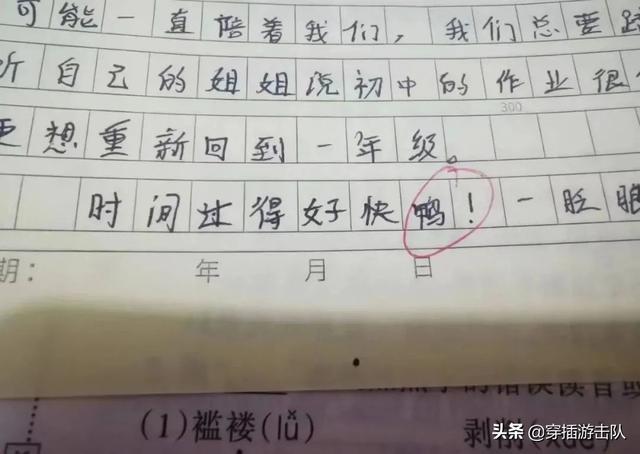 可能一直陪着我们，我们总要
听自己的姐姐说初中的作业很
300
更想重新回到一年级。
时间过得好快鸭！一眨眼
期： 年 月 日
(1)褴褛(lǚ)
剥削(xuē)
头条 @穿插游击队